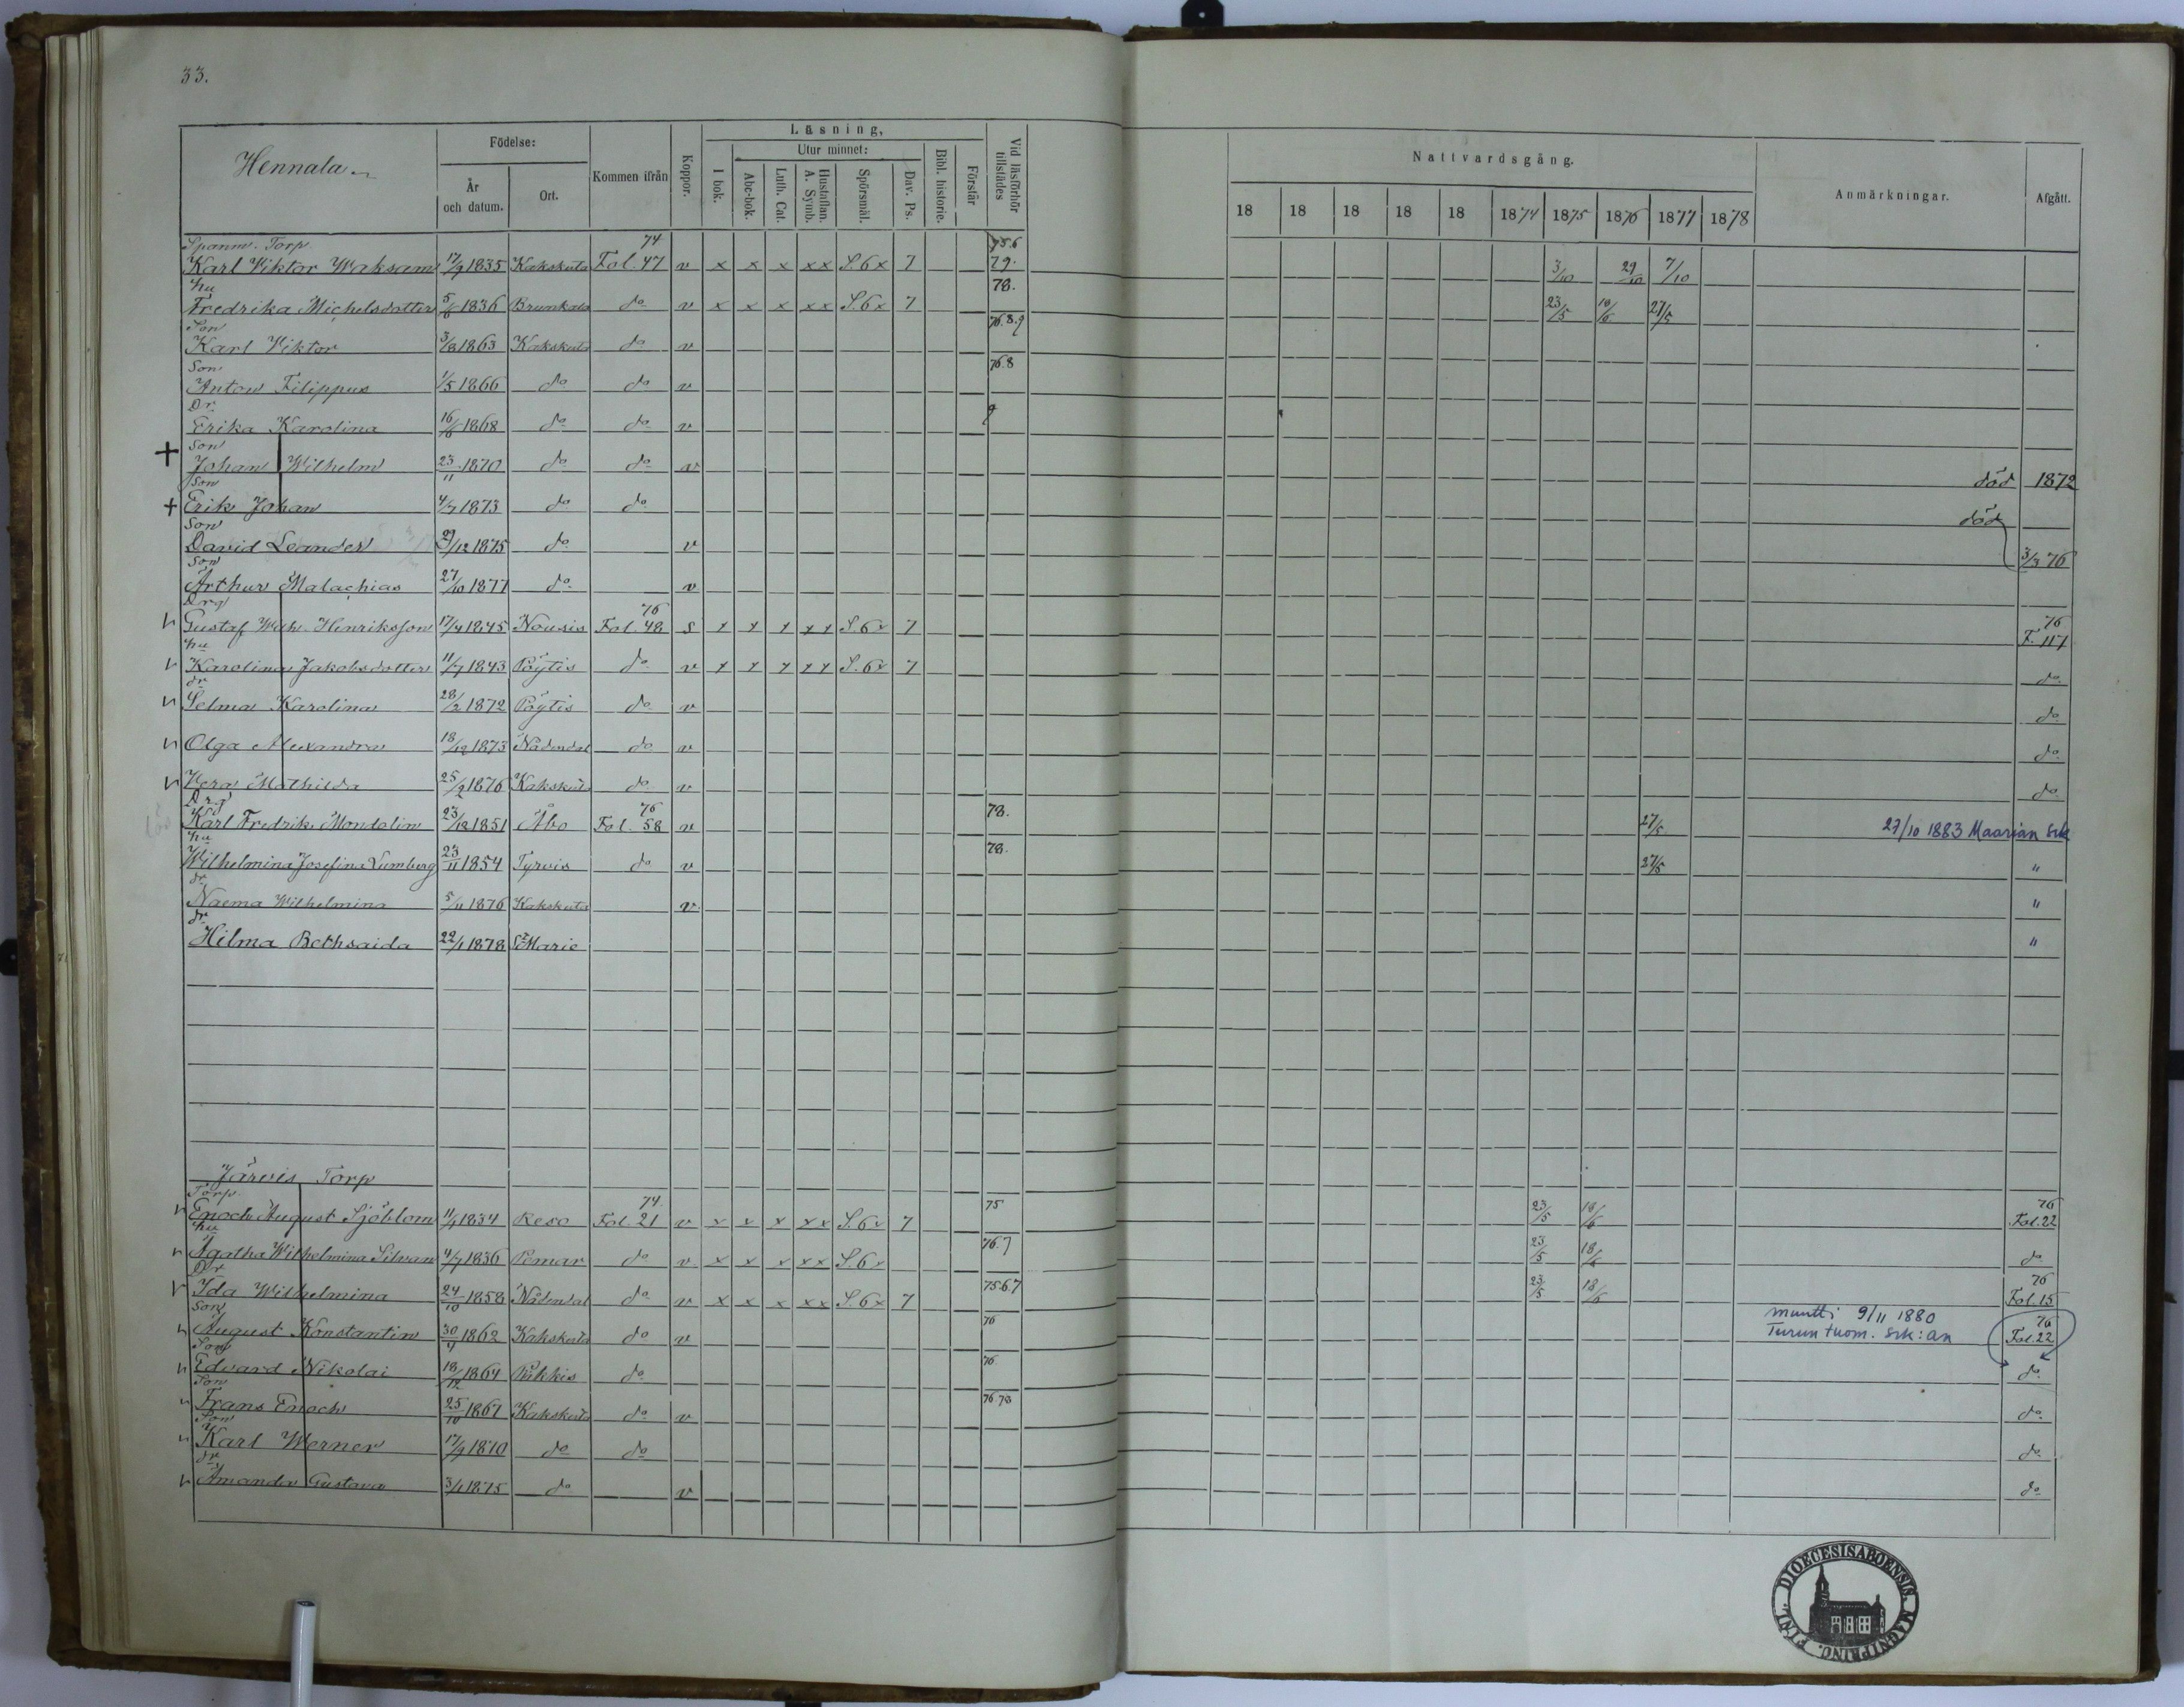 33.
Hennala
Födelse:
År och datum.
Ort.
Kommen ifrån
Koppor.
Läsning,
I bok.
Utur minnet:
Abc-bok.
Luth. Cat.
Hustaflan. A. Symb.
Spörsmål.
Dav. Ps.
Bibl. historie.
Förstår
Vid läsförhör tillstädes
Nattvardsgång.
18 18 18 18 18 1874 1875 1876 1877 1878
Anmärkningar.
Afgått.
Spanm. Torp 74 75.6
Karl Viktor Waksam 17/9 1835 Kakskerta Fol. 47 v x x x x x S. 6 x 7 79. 3/10 29/10 7/10
hu 78.
Fredrika Michelsdotter 5/6 1836 Brunkala do v x x x x x S. 6 x 7 23/5 18/6 27/5
Son 76.8.9
Karl Viktor 3/8 1863 Kakskerta do v
Son 76.8
Anton Filippus 1/5 1866 do do v
Dr. 9
Erika Karolina 16/6 1868 do do v
Son
+ Johan Wilhelm 23/11 1870 do do v död 1872
Son
+ Erik Johan 4/7 1873 do do död
Son
David Leander /12 1875 do v 3/3 76
Son
Arthur Malachias 27/10 1877 do v
Drg 76 76
Gustaf Wilh. Henriksson 17/4 1845 Nousis Fol. 48 s x x x x x S. 6 x 7 F. 117
hu
Karolina Jakobsdotter 11/7 1843 Pöytis do v x x x x x S. 6 x 7 do
dr
Selma Karolina 28/2 1872 Pöytis do v do
Olga Alexandra 18/12 1873 Nådendal do v do
Vera Mathilda 25/2 1876 Kakskerta do v do
Drg 76 78.
Karl Fredrik Mondelin 23/12 1851 Åbo Fol. 58 v 27/5 27/10 1883 Maarian srk
hu 78.
Wilhelmina Josefina Lumberg 23/11 1854 Tyrvis do v 27/5 "
dr
Naema Wilhelmina 5/11 1876 Kakskerta v "
dr
Hilma Bethsaida 22/1 1878 St Marie "
Järvis Torp
Torp. 74. 75 76
Enoch August Sjöblom 11/9 1834 Reso Fol. 21 v x x x x x S. 6 x 7 23/5 18/6 Fol. 22
hu 76.7
Agatha Wilhelmina Silvan 4/7 1836 Pemar do v x x x x x S. 6 x 23/5 18/6 do
Dr 75.6.7 76
Ida Wilhelmina 24/10 1858 Nådendal do v x x x x x S. 6 x 7 23/5 18/6 Fol. 15
Son 76 muutti 9/11 1880 76
August Konstantin 30/7 1862 Kakskerta do v Turun tuom. srk:an Fol. 22
Son 76
Edvard Nikolai 18/12 1864 Pikkis do do
Son 76.78
Frans Enoch 25/10 1867 Kakskerta do v do
Son
Karl Werner 17/9 1870 do do do
dr
Amanda Gustava 3/1 1875 do v do
DIOECESIS ABOENSIS. MAGNI PRINC. FINL.